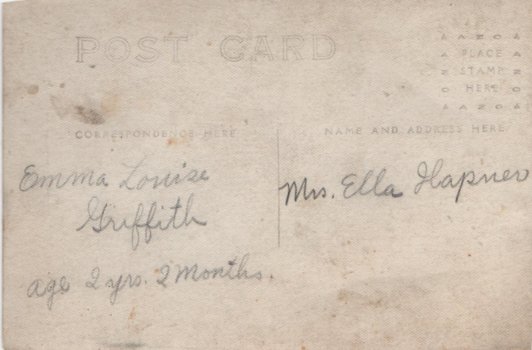 POST CARD
A A Z O A
A PLACE A
Z STAMP Z
O HERE O
A A Z O A
CORRESPONDENCE HERE
NAME AND ADDRESS HERE
Emma Louise
Griffith
age 2 yrs. 2 Months.
Mrs. Ella Hapner